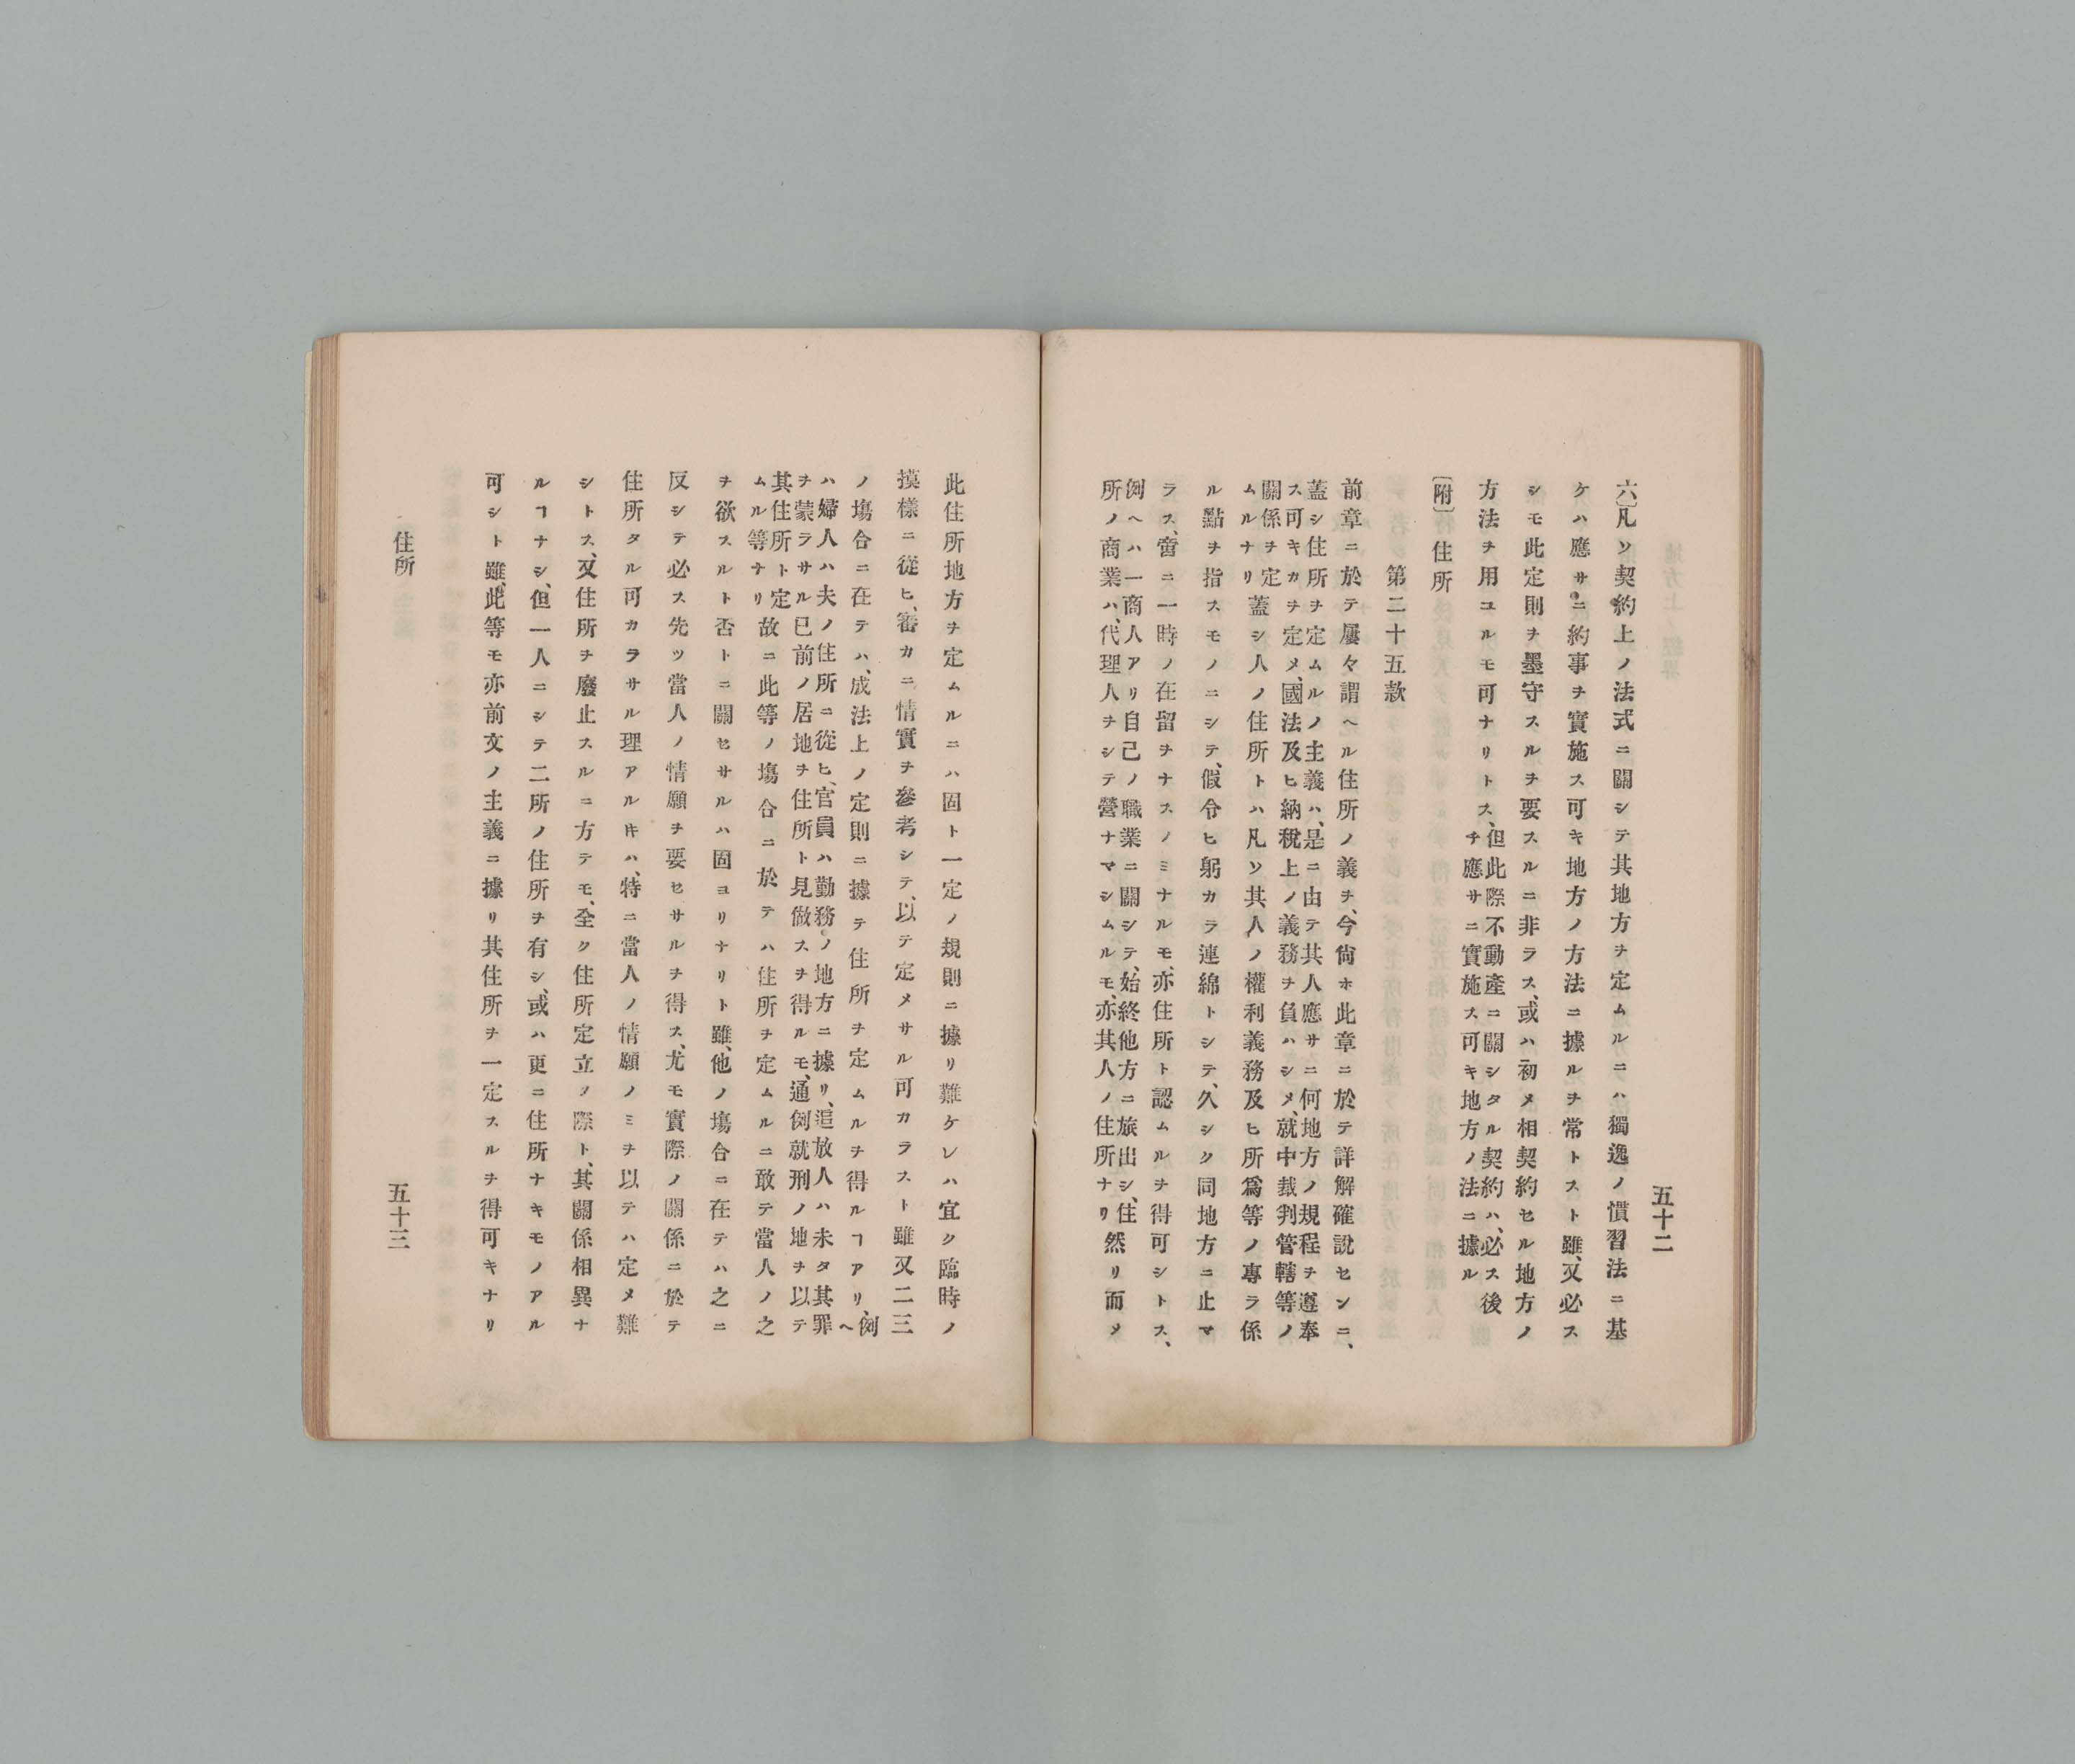 五十二
六〕凡ソ契約上ノ法式ニ關シテ其地方ヲ定ムルニハ獨逸ノ慣習法ニ基
ケハ應サニ約事ヲ實施ス可キ地方ノ方法ニ據ルヲ常トスト雖、又必ス
シモ此定則ヲ墨守スルヲ要スルニ非ラス、或ハ初メ相契約セル地方ノ
方法ヲ用ユルモ可ナリトス、
但此際不動產ニ關シタル契約ハ、必ス後
チ應サニ實施ス可キ地方ノ法ニ據ル
〔附〕住所
第二十五款
前章ニ於テ屢々謂ヘル住所ノ義ヲ、今尙ホ此章ニ於テ詳解確說セシニ、
蓋シ住所ヲ定ムルノ主義ハ、是ニ由テ其人應サニ何地方ノ規程ヲ遵奉
ス可キカヲ定メ、國法及ヒ納稅上ノ義務ヲ負ハシメ、就中裁判管轄等ノ
關係ヲ定
ムルナリ
蓋シ人ノ住所トハ凡ソ其人ノ權利義務及ヒ所爲等ノ專ラ係
ル點ヲ指スモノニシテ、假令ヒ躬カラ連綿トシテ、久シク同地方ニ止マ
ラス、啻ニ一時ノ在留ヲナスノミナルモ、亦住所ト認ムルヲ得可シトス、
例ヘハ一商人アリ自己ノ職業ニ關シテ、始終他方ニ旅出シ、住
所ノ商業ハ、代理人ヲシテ營ナマシムルモ、亦其人ノ住所ナリ
然リ而メ
此住所地方ヲ定ムルニハ固ト一定ノ規則ニ據リ難ケレハ宜ク臨時ノ
摸樣ニ從ヒ、審カニ情實ヲ參考シテ、以テ定メサル可カラスト雖又二三
ノ塲合ニ在テハ、成法上ノ定則ニ據テ住所ヲ定ムルヲ得ルヿアリ、
例
ヘ
ハ婦人ハ夫ノ住所ニ從ヒ、官員ハ勤務ノ地方ニ據リ、追放人ハ未タ其罪
ヲ蒙ラサル已前ノ居地ヲ住所ト見做スヲ得ルモ、通例就刑ノ地ヲ以テ
其住所ト定
ムル等ナリ
故ニ此等ノ塲合ニ於テハ住所ヲ定ムルニ敢テ當人ノ之
ヲ欲スルト否トニ關セサルハ固ヨリナリト雖、他ノ塲合ニ在テハ之ニ
反シテ必ス先ツ當人ノ情願ヲ要セサルヲ得ス、尤モ實際ノ關係ニ於テ
住所タル可カラサル理アルキハ、特ニ當人ノ情願ノミヲ以テハ定メ難
シトス、又住所ヲ廢止スルニ方テモ、全ク住所定立ノ際ト、其關係相異ナ
ルヿナシ、但一人ニシテ二所ノ住所ヲ有シ、或ハ更ニ住所ナキモノアル
可シト雖、此等モ亦前文ノ主義ニ據リ其住所ヲ一定スルヲ得可キナリ
住所
五十三